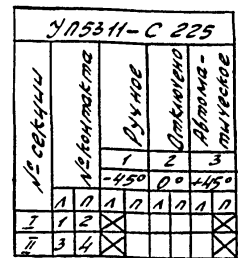 УП5311-С 225
№ секции
№ контакта
Ручное
Отключено
Автома-
тическое
1 2 3
-45° 0° +45°
Л П Л П Л П Л П
I 1 2
II 3 4